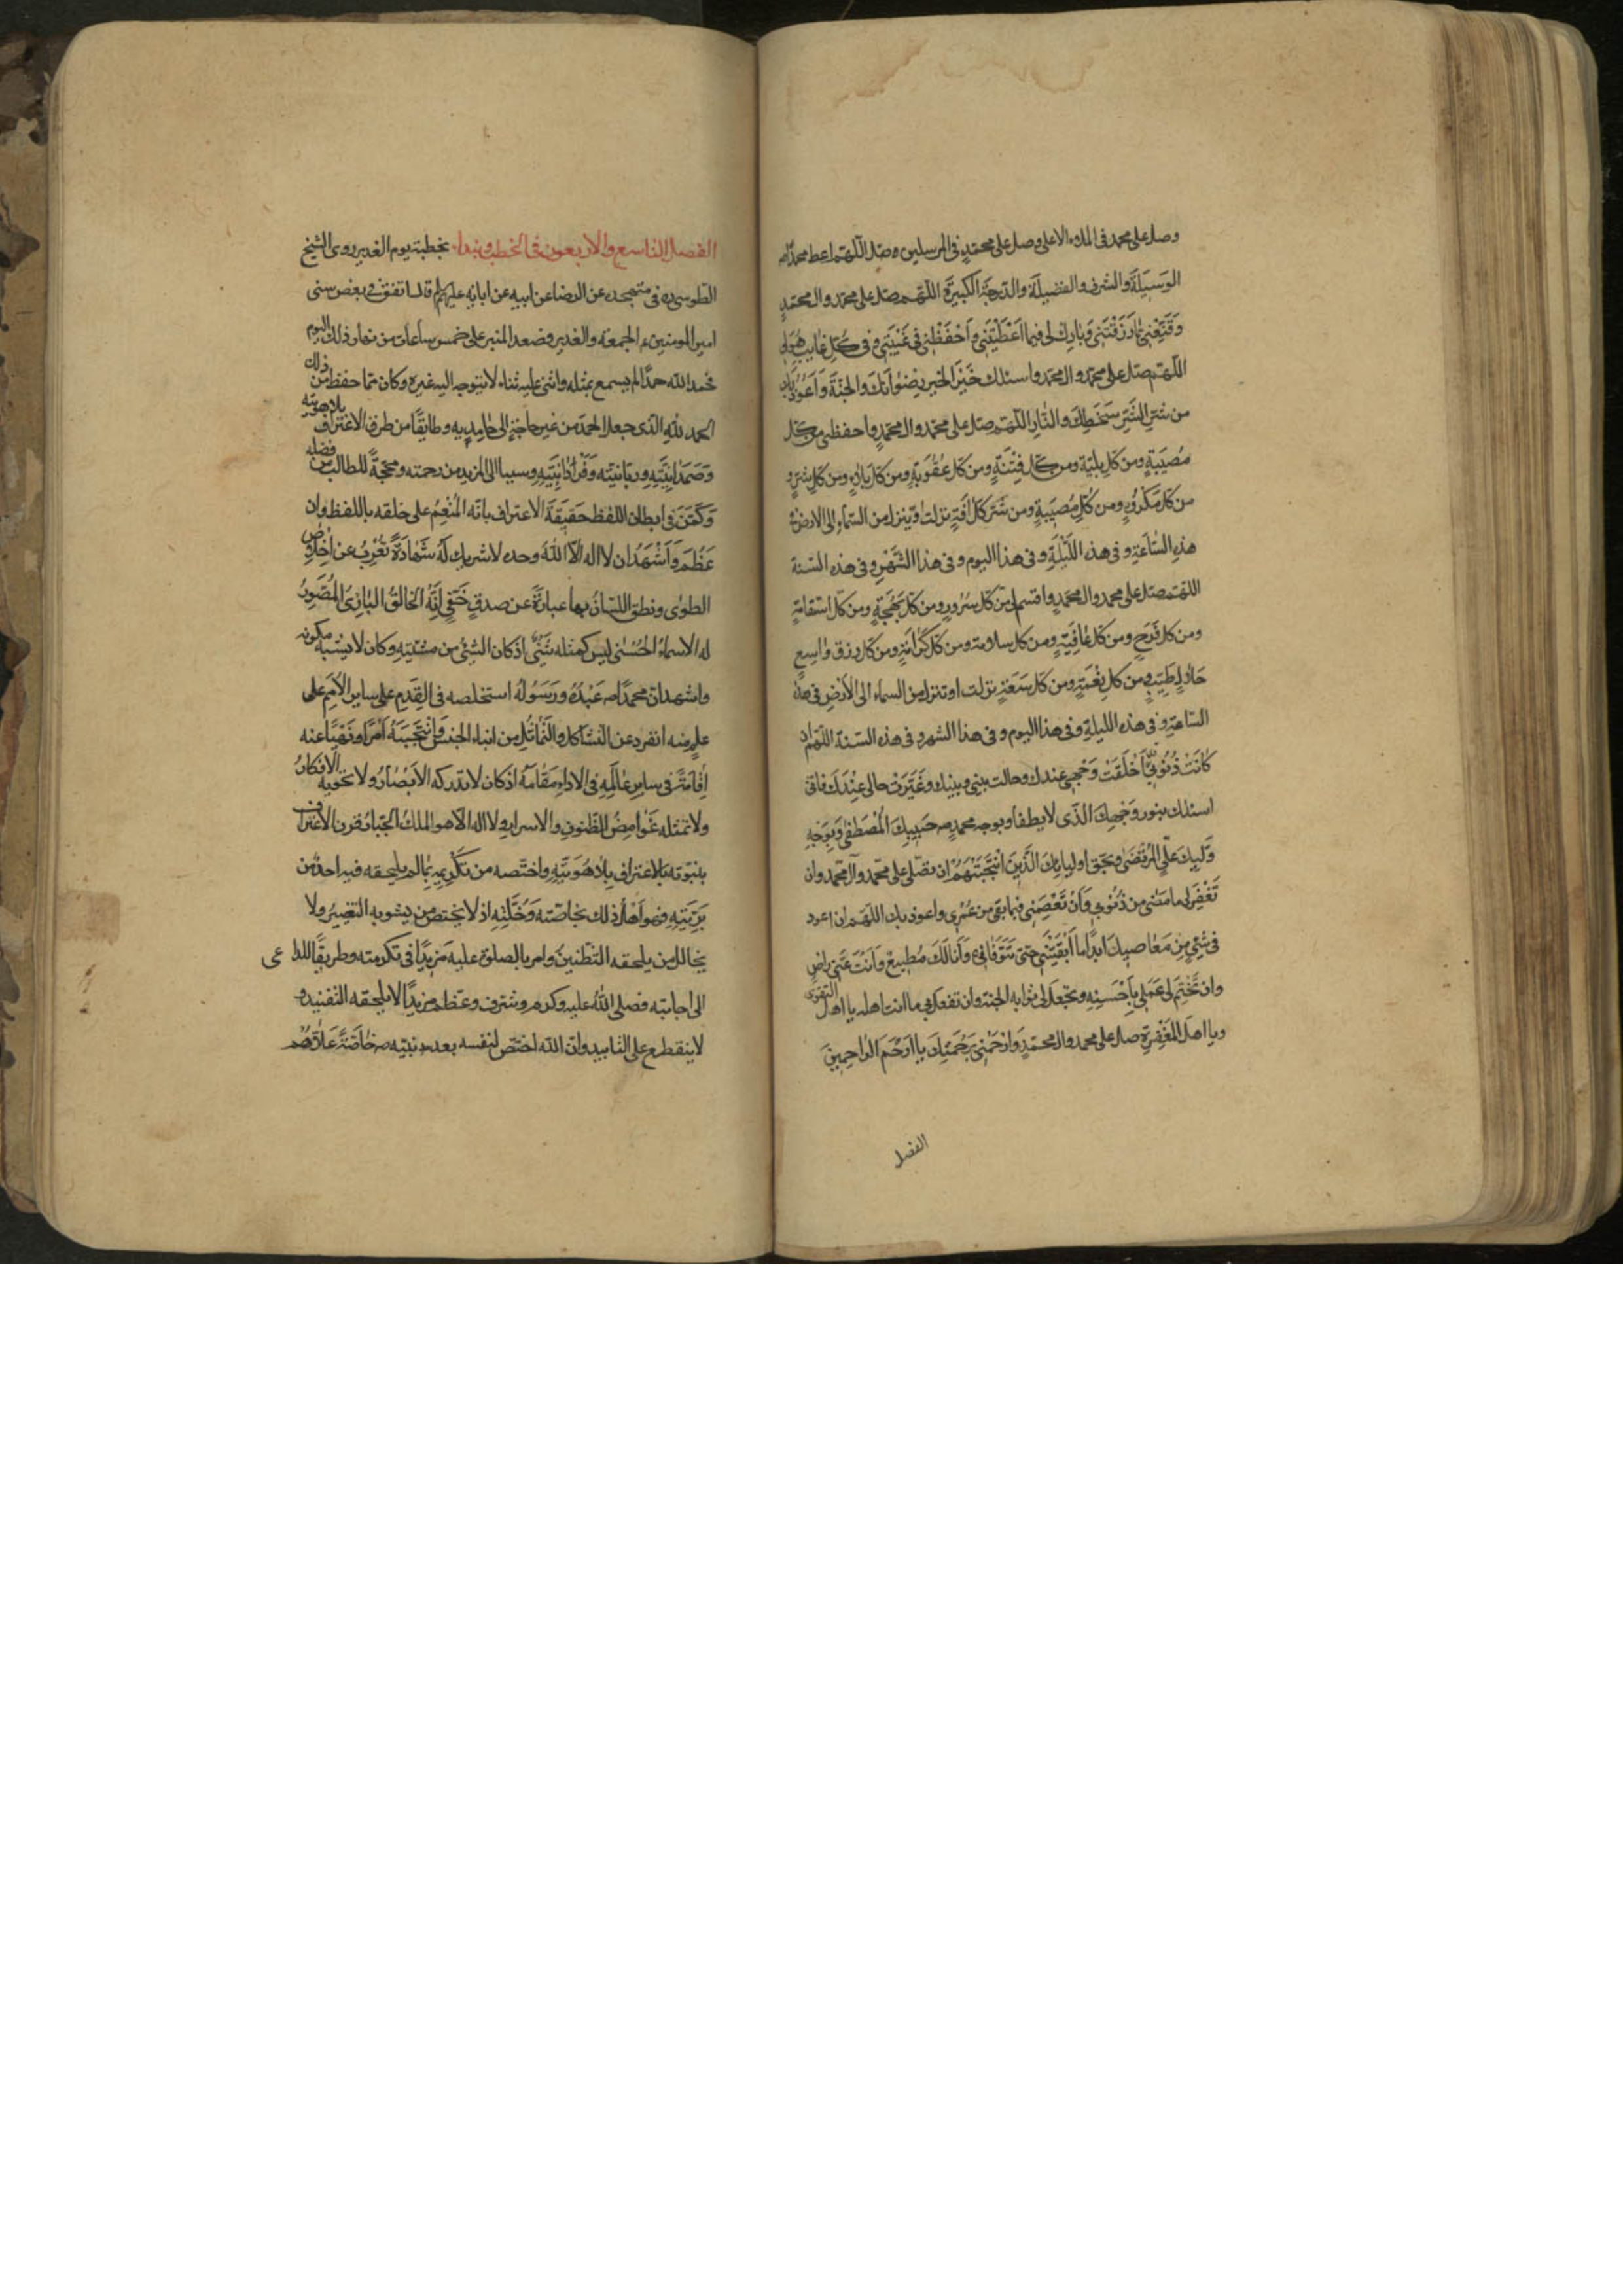 وصل على محمد في الملاء الاعلى وصل على محمد في المرسلين صل اللهم اعط محمدا
الوسيلة والشرف والفضيلة والدرجة الكبيرة اللهم صل على محمد وال محمد
وقنعني بما رزقتني وبارك لي فيما اعطيتني واحفظني في غيبتي وفي كل غايب هو لي
اللهم صل على محمد وال محمد واسئلك خير الخير رضوانك والجنة واعوذ بك
من شر الشر سخطك والنار اللهم صل على محمد وال محمد واحفظني من كل
مصيبة ومن كل بلية ومن كل فتنة ومن كل عقوبة ومن كل بلاء ومن كل شر و
من كل مكروه ومن كل مصيبة ومن شر كل افة نزلت او تنزل من السماء الى الارض في
هذه الساعة وفي هذه الليلة وفي هذا اليوم وفي هذا الشهر وفي هذه السنة
اللهم صل على محمد وال محمد واقسم لي من كل سرور ومن كل بهجة ومن كل استقامة
ومن كل فرح ومن كل عافية ومن كل سلامة ومن كل كرامة ومن كل رزق واسع
حلال طيب ومن كل نعمة ومن كل سعة نزلت او تنزل من السماء الى الارض في هذه
الساعة وفي هذه الليلة وفي هذا اليوم وفي هذا الشهر وفي هذه السنة اللهم ان
كانت ذنوبي اخلقت وجهي عندك وحالت بيني وبينك وغيرت حالي عندك فاني
اسئلك بنور وجهك الذي لا يطفا وبوجه محمد حبيبك المصطفى وبوجه
وليك علي المرتضى وبحق اوليائك الذين انتجبتهم ان تصلي على محمد وآل محمد وان
تغفر لي ما مضى من ذنوبي وان تعصمني فيما بقي من عمري واعوذ بك اللهم ان اعود
في شيء من معاصيك ابدا ما ابقيتني حتى تتوفاني وانا لك مطيع وانت عني راض
وان تختم لي عملي باحسنه وتجعل لي ثوابه الجنة وان تفعل بي ما انت اهله يا اهل التقوى
ويا اهل المغفرة صل على محمد وال محمد وارحمني برحمتك يا ارحم الراحمين
الفصل
الفصل التاسع والاربعون في الخطب ونبدا بخطبة يوم الغدير روى الشيخ
الطوسي ره في متهجده عن الرضا عن ابيه عن ابايه عليهم قال اتفق في بعض سني
امير المومنين ع الجمعة والغدير فصعد المنبر على خمس ساعات من نهار ذلك اليوم
فحمد الله حمدا لم يسمع بمثله واثنى عليه ثناء لا يتوجه اليه غيره وكان مما حفظ من ذلك
الحمد لله الذي جعل الحمد من غير حاجة الى حامديه وطريقا من طرق الاعتراف بلاهوتيته
وصمدانيته وربانيته وفردانيته وسببا الى المزيد من رحمته ومحجة للطالب من فضله
وكمن في ابطان اللفظ حقيقة الاعتراف بانه المنعم على خلقه باللفظ وان
عظم واشهد ان لا اله الا الله وحده لا شريك له شهادة تعرب عن اخلاص
الطوى ونطق اللسان بها عبارة عن صدق خفي انه الخالق البارئ المصور
له الاسماء الحسنى ليس كمثله شيء اذ كان الشيء من مشيته وكان لا يشبهه مكونه
واشهد ان محمدا عبده ورسوله استخلصه في القدم على ساير الامم على
علم منه انفرد عن التشاكل والتماثل من ابناء الجنس وانتجبه امرا ونهيا عنه
اقامه في ساير عالمه في الاداء مقامه اذ كان لا تدركه الابصار ولا تحويه الافكار
ولا تمثله غوامض الظنون والاسرار ولا اله الا هو الملك الجبار قرن الاعتراف
بنبوته بالاعتراف بلاهوتيته واختصه من تكريمه بما لم يلحقه فيه احد من
بريته فهو اهل ذلك بخاصته وخلته اذ لا يختص من يشوبه التغيير ولا
يخالل من يلحقه التظنين وامر بالصلوة عليه مزيدا في تكرمته وطريقا للداعي
الى اجابته فصلى الله عليه وكرم وشرف وعظم مزيدا لا يلحقه التفنيد و
لا ينقطع على التابيد وان الله اختص لنفسه بعد نبيه خاصة علاهم